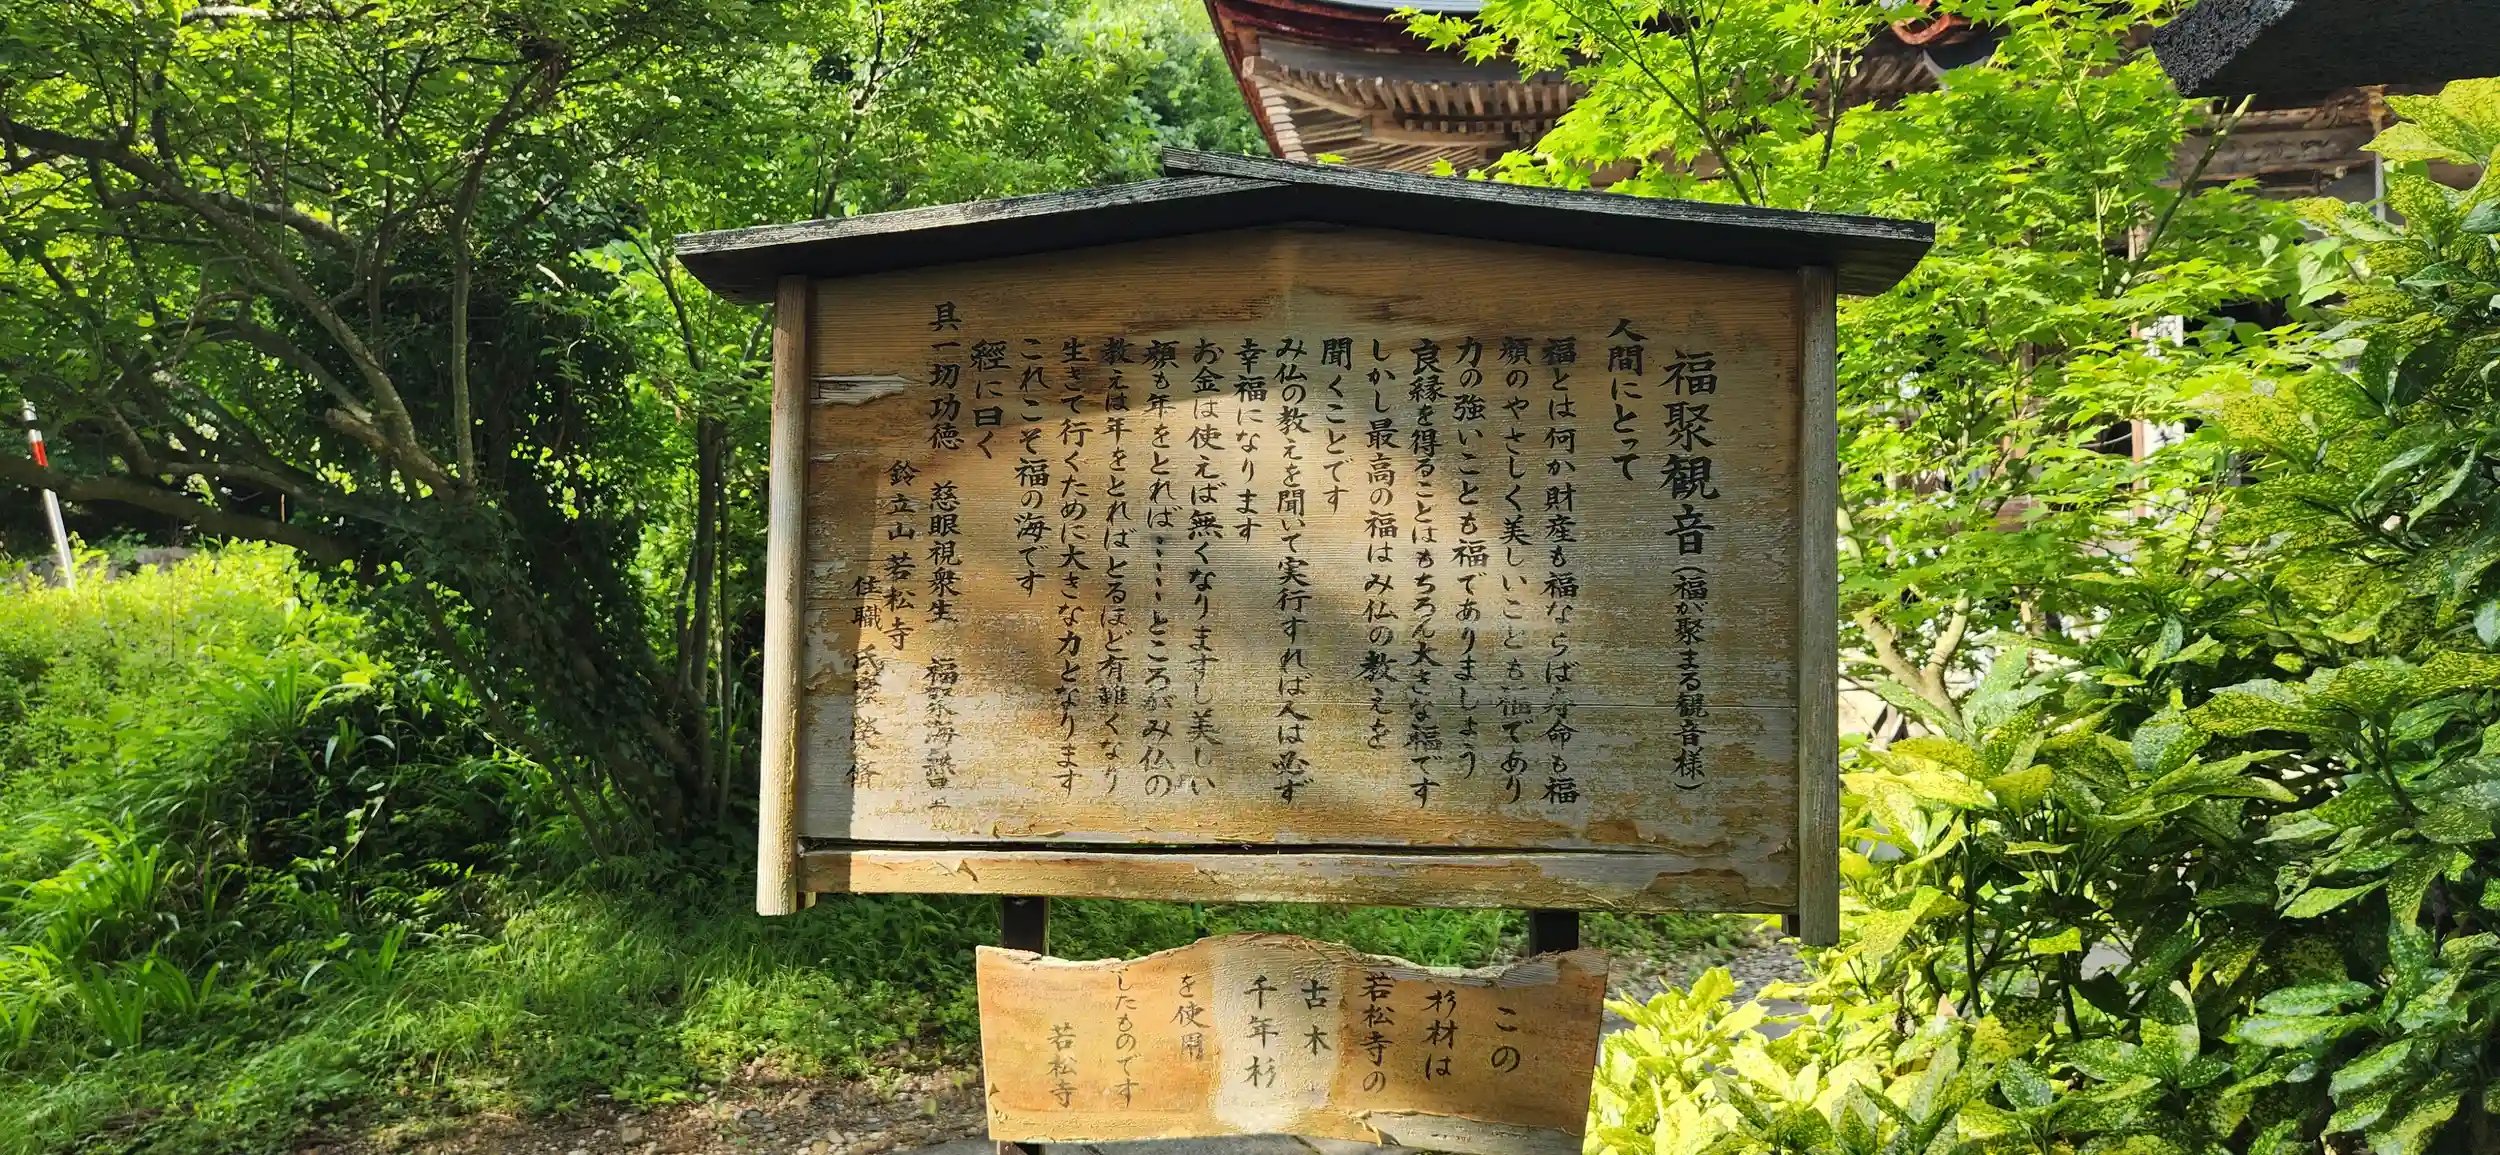 福聚観音(福が聚まる観音様)
人間にとって
福とは何か財産も福ならば寿命も福
顔のやさしく美しいことも福であり
力の強いことも福でありましょう
良縁を得ることはもちろん大きな福です
しかし最高の福はみ仏の教えを
聞くことです
み仏の教えを聞いて実行すれば人は必ず
幸福になります
お金は使えば無くなりますし美しい
顔も年をとれば・・・・ところがみ仏の
教えは年をとればとるほど有難くなり
生きて行くために大きな力となります
これこそ福の海です
經に曰く
具一切功徳 慈眼視衆生 福聚海無量
鈴立山 若松寺
住職 氏家 榮脩
この
杉材は
若松寺の
古木
千年杉
を使用
したものです
若松寺